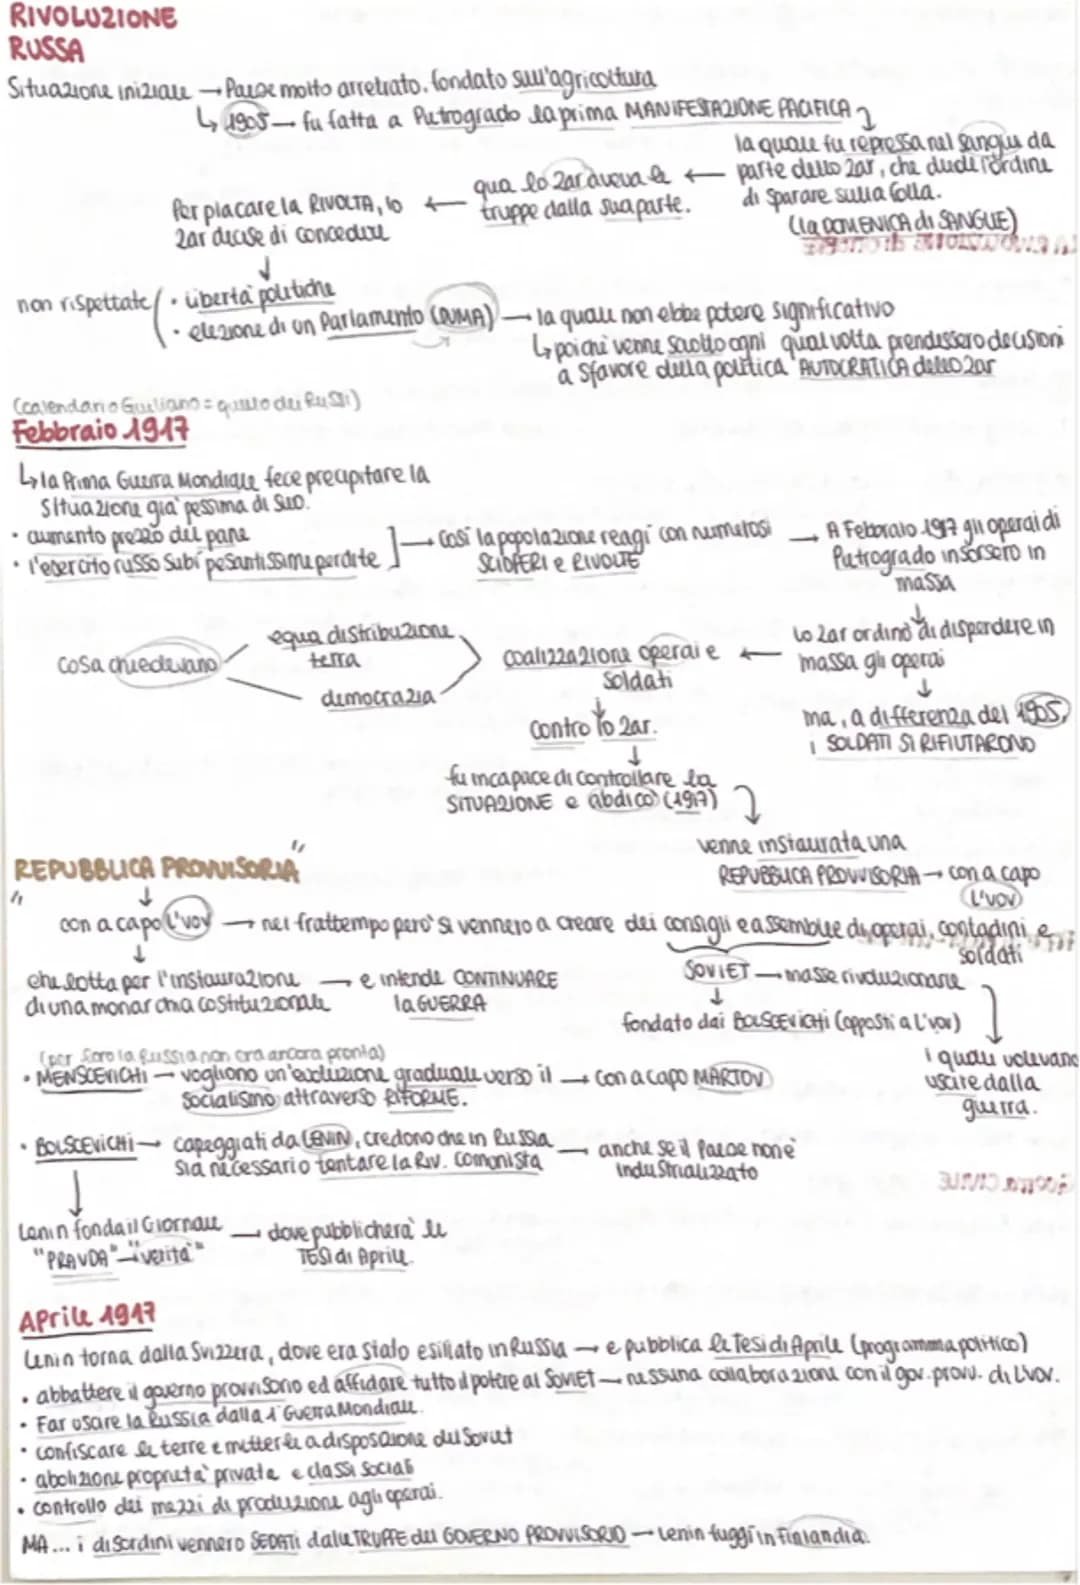 RIVOLUZIONE
RUSSA
Situazione iniziale → Paese molto arretrato. fondato sull'agricoltura
↳ 1905 — fu fatta a Pietrogrado la prima MANIFESTAZIONE PACIFICA
la quale fu repressa nel sangue da
parte dello zar, che diede l'ordine
di sparare sulla folla.
(la DOMENICA di SANGUE)
qua lo zar aveva le ←
truppe dalla sua parte.
Per placare la RIVOLTA, lo ←
zar decise di concedere
↓
non rispettate
• libertà politiche
• elezione di un Parlamento (DUMA) → la quale non ebbe potere significativo
↳ poiché venne sciolto ogni qual volta prendessero decisioni
a sfavore della politica AUTOCRATICA dello zar
(calendario Giuliano = quello dei Russi)
Febbraio 1917
↳ la Prima Guerra Mondiale fece precipitare la
situazione già pessima di suo.
• aumento prezzo del pane
• l'esercito russo subì pesantissime perdite
→ Così la popolazione reagì con numerosi
SCIOPERI e RIVOLTE
→ A Febbraio 1917 gli operai di
Pietrogrado insorsero in
massa
↓
lo zar ordinò di disperdere in
massa gli operai
↓
ma, a differenza del 1905,
i SOLDATI SI RIFIUTARONO
cosa chiedevano
equa distribuzione
terra
democrazia
coalizzazione operai e ←
soldati
↓
contro lo zar.
↓
fu incapace di controllare la
SITUAZIONE e abdicò (1917)
venne instaurata una
REPUBBLICA PROVVISORIA → con a capo
L'vov
"REPUBBLICA PROVVISORIA"
↓
con a capo L'vov → nel frattempo però si vennero a creare dei consigli e assemblee di operai, contadini e
soldati
↓
che lotta per l'instaurazione → e intende CONTINUARE
di una monarchia costituzionale la GUERRA
SOVIET → masse rivoluzionarie
↓
fondato dai BOLSCEVICHI (opposti a L'vov)
i quali volevano
uscire dalla
guerra.
(per loro la Russia non era ancora pronta)
• MENSCEVICHI → vogliono un'evoluzione graduale verso il → con a capo MARTOV
socialismo attraverso RIFORME.
• BOLSCEVICHI → capeggiati da LENIN, credono che in Russia — anche se il Paese non è
sia necessario tentare la Riv. Comunista industrializzato
Lenin fonda il Giornale → dove pubblicherà le
"PRAVDA" → "verità" TESI di Aprile.
Aprile 1917
Lenin torna dalla Svizzera, dove era stato esiliato in Russia → e pubblica le Tesi di Aprile (programma politico)
• abbattere il governo provvisorio ed affidare tutto il potere ai SOVIET → nessuna collaborazione con il gov. provv. di L'vov.
• Far uscire la Russia dalla 1ª Guerra Mondiale.
• confiscare le terre e metterle a disposizione del Soviet
• abolizione proprietà private e classi sociali
• controllo dei mezzi di produzione agli operai.
MA... i disordini vennero SEDATI dalle TRUPPE del GOVERNO PROVVISORIO → Lenin fuggì in Finlandia.